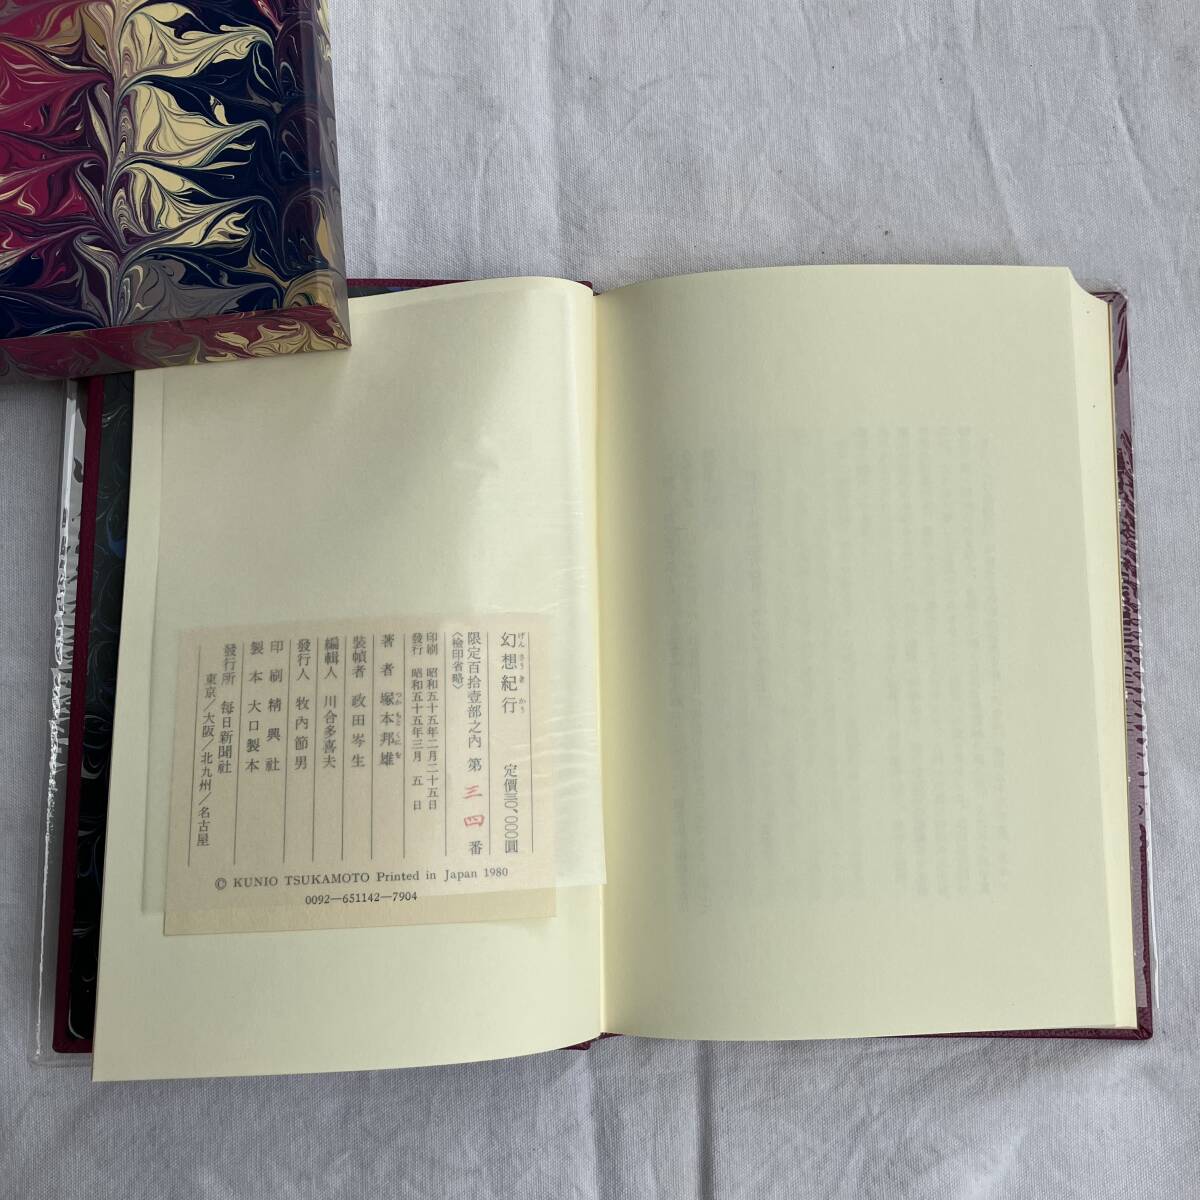 幻想紀行 定價三〇,〇〇〇圓
げんさうきかう
限定百拾壹部之內 第三四番
〈檢印省略〉
印刷 昭和五十五年二月二十五日
發行 昭和五十五年三月 五 日
著者 塚本邦雄
つかもとくにを
裝幀者 政田岑生
編輯人 川合多喜夫
發行人 牧內節男
印刷 精興社
製本 大口製本
發行所 每日新聞社
東京/大阪/北九州/名古屋
© KUNIO TSUKAMOTO Printed in Japan 1980
0092—651142—7904